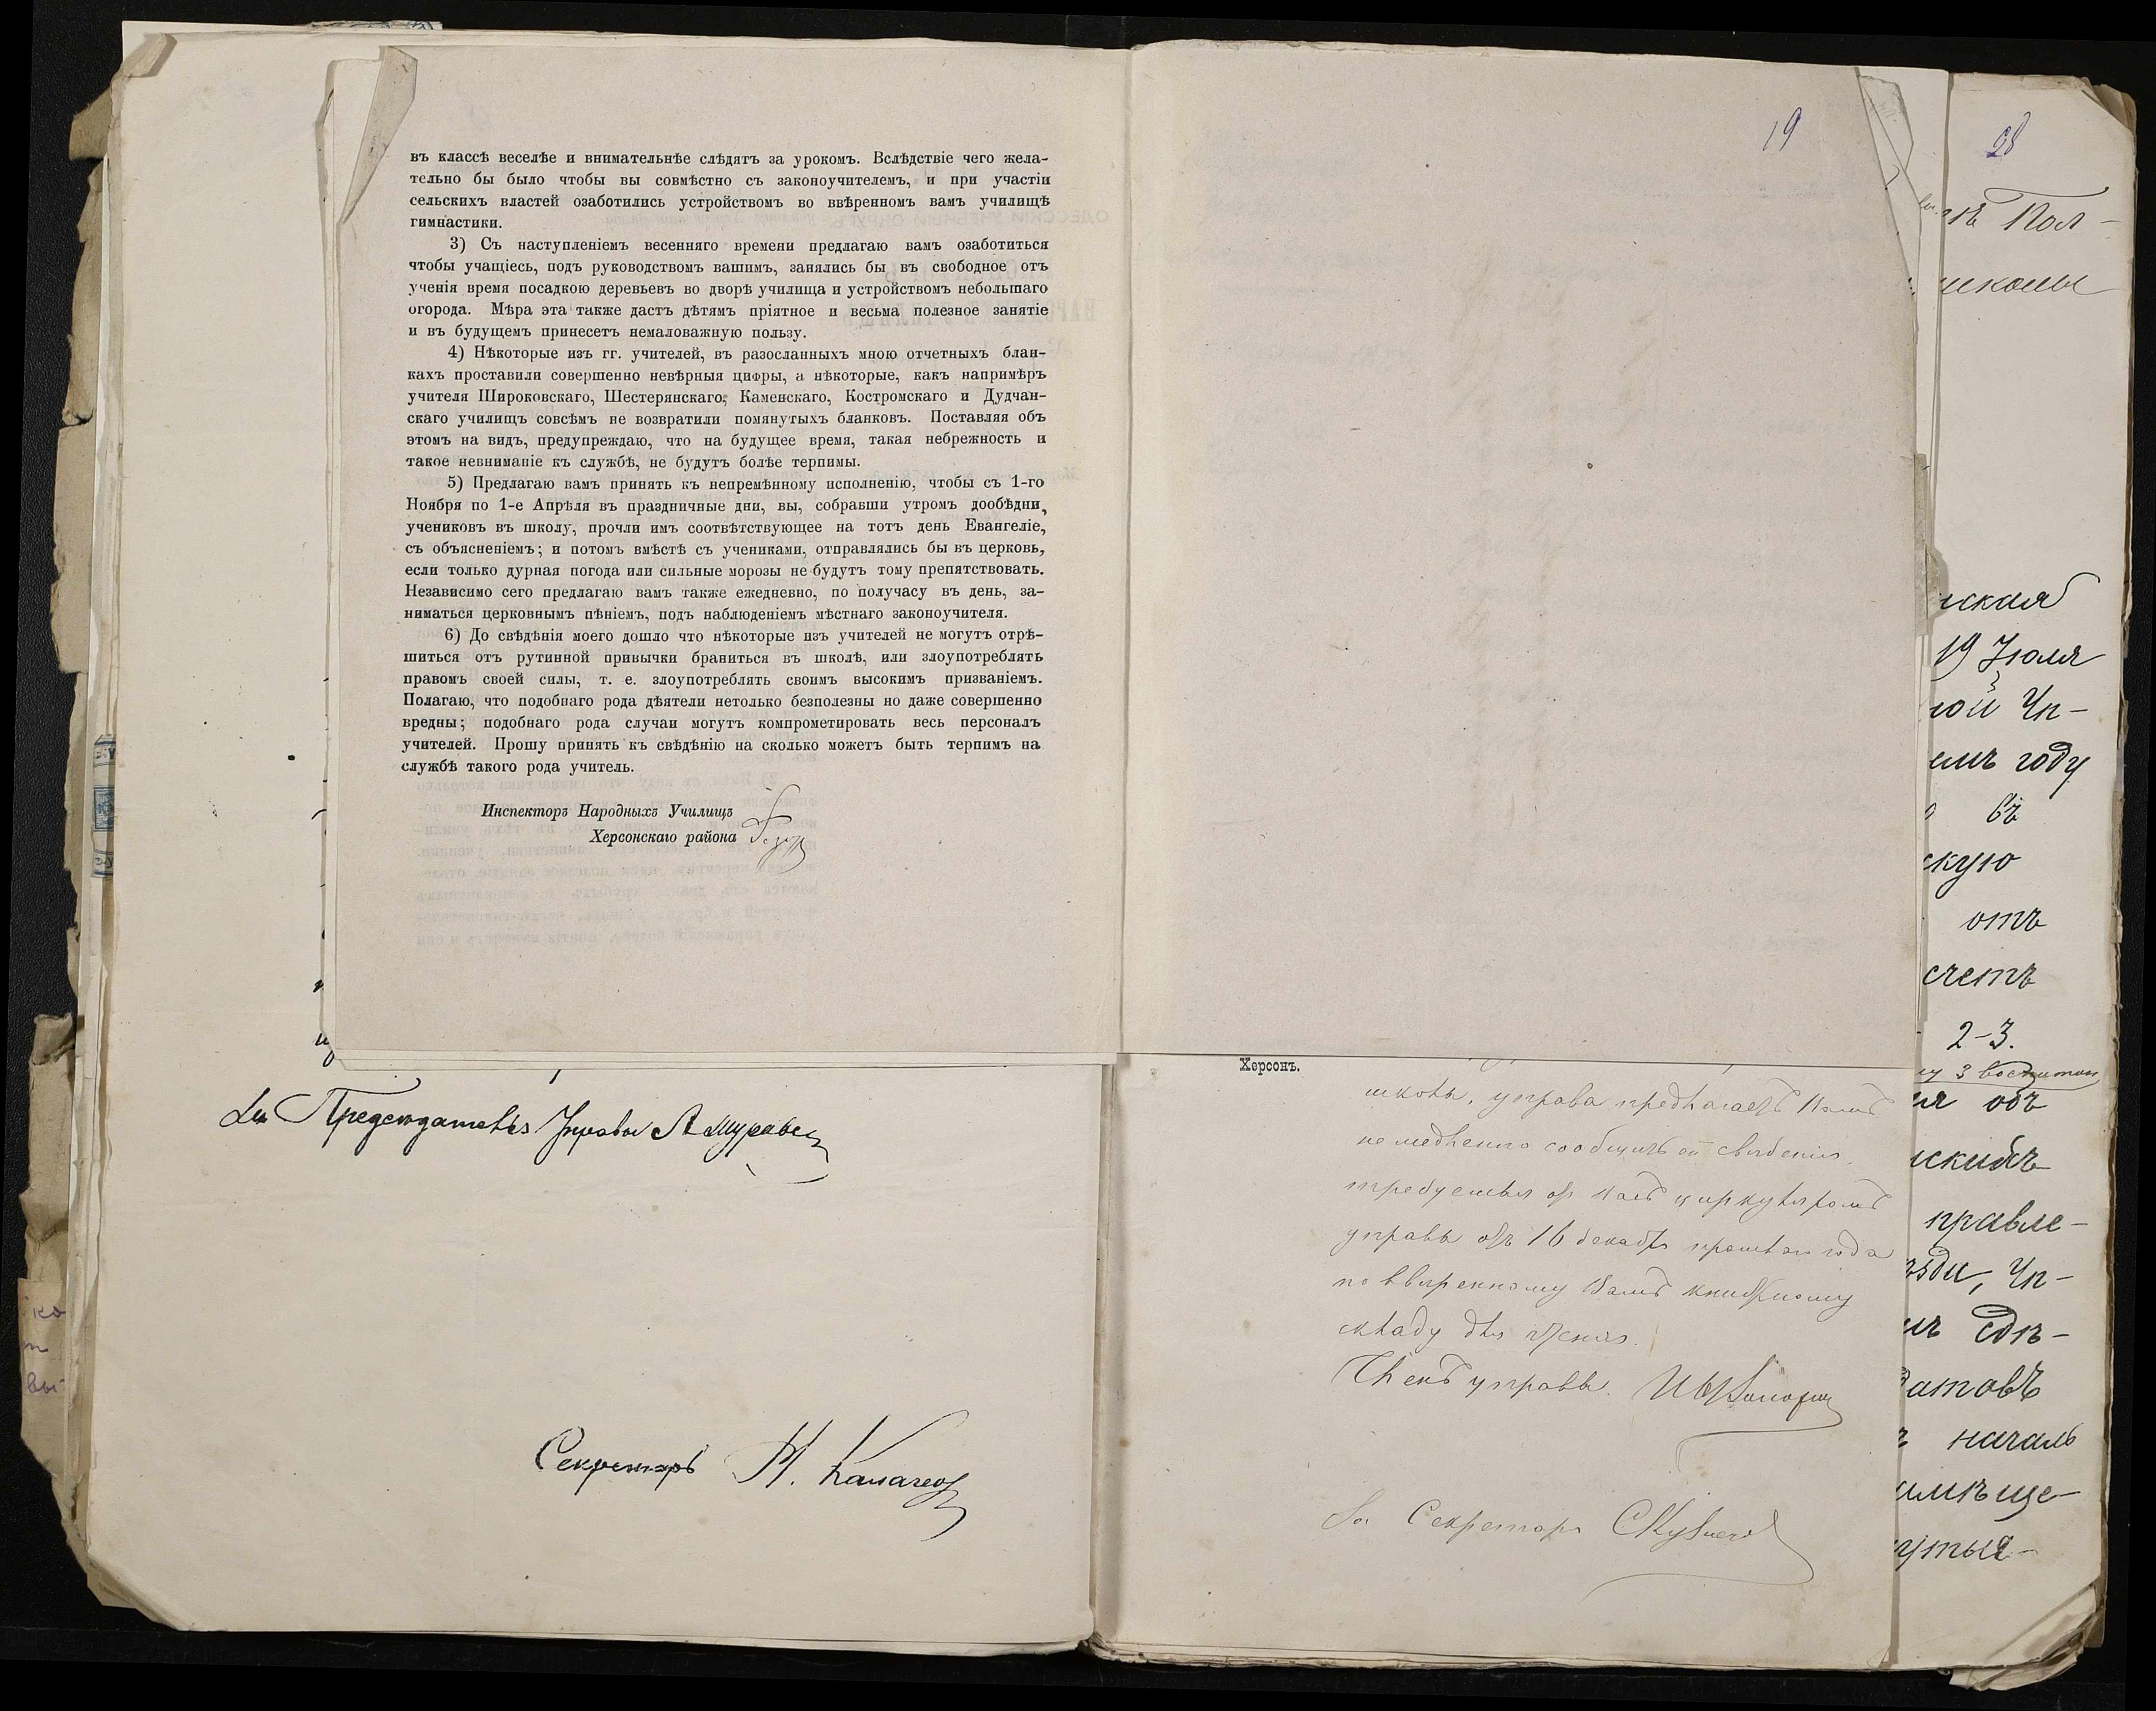 въ классѣ веселѣе и внимательнѣе слѣдятъ за урокомъ. Вслѣдствіе чего жела-
тельно бы было чтобы вы совмѣстно съ законоучителемъ, и при участіи
сельскихъ властей озаботились устройствомъ во ввѣренномъ вамъ училищѣ
гимнастики.
3) Съ наступленіемъ весенняго времени предлагаю вамъ озаботиться
чтобы учащіесь, подъ руководствомъ вашимъ, занялись бы въ свободное отъ
ученія время посадкою деревьевъ во дворѣ училища и устройствомъ небольшаго
огорода. Мѣра эта также дастъ дѣтямъ пріятное и весьма полезное занятіе
и въ будущемъ принесетъ немаловажную пользу.
4) Нѣкоторые изъ гг. учителей, въ разосланныхъ мною отчетныхъ блан-
кахъ проставили совершенно невѣрныя цифры, а нѣкоторые, какъ напримѣръ
учителя Широковскаго, Шестерянскаго, Каменскаго, Костромскаго и Дудчан-
скаго училищъ совсѣмъ не возвратили помянутыхъ бланковъ. Поставляя объ
этомъ на видъ, предупреждаю, что на будущее время, такая небрежность и
такое невниманіе къ службѣ, не будутъ болѣе терпимы.
5) Предлагаю вамъ принять къ непремѣнному исполненію, чтобы съ 1-го
Ноября по 1-е Апрѣля въ праздничные дни, вы, собравши утромъ дообѣдни,
учениковъ въ школу, прочли имъ соотвѣтствующее на тотъ день Евангеліе,
съ объясненіемъ; и потомъ вмѣстѣ съ учениками, отправлялись бы въ церковь,
если только дурная погода или сильные морозы не будутъ тому препятствовать.
Независимо сего предлагаю вамъ также ежедневно, по получасу въ день, за-
ниматься церковнымъ пѣніемъ, подъ наблюденіемъ мѣстнаго законоучителя.
6) До свѣдѣнія моего дошло что нѣкоторые изъ учителей не могутъ отрѣ-
шиться отъ рутинной привычки браниться въ школѣ, или злоупотреблять
правомъ своей силы, т. е. злоупотреблять своимъ высокимъ призваніемъ.
Полагаю, что подобнаго рода дѣятели нетолько безполезны но даже совершенно
вредны; подобнаго рода случаи могутъ компрометировать весь персоналъ
учителей. Прошу принять къ свѣдѣнію на сколько можетъ быть терпимъ на
службѣ такого рода учитель.
Инспекторъ Народныхъ Училищъ
Херсонскаго района
Предсѣдатель Управы
Секретарь
19
Херсонъ.
школы, управа предлагаетъ Вамъ
немедленно сообщить ей свѣденія,
требуемыя отъ Васъ циркуляромъ
управы отъ 16 декабря прошлаго года
по ввѣренному Вамъ книжному
складу для чтенія.
Членъ управы
За Секретаря
Пол-
школы
ская
19 Іюля
ной Уп-
емъ году
въ
скую
отъ
счетъ
2-3.
объ
правле-
Уп-
сдѣ-
датовъ
началь